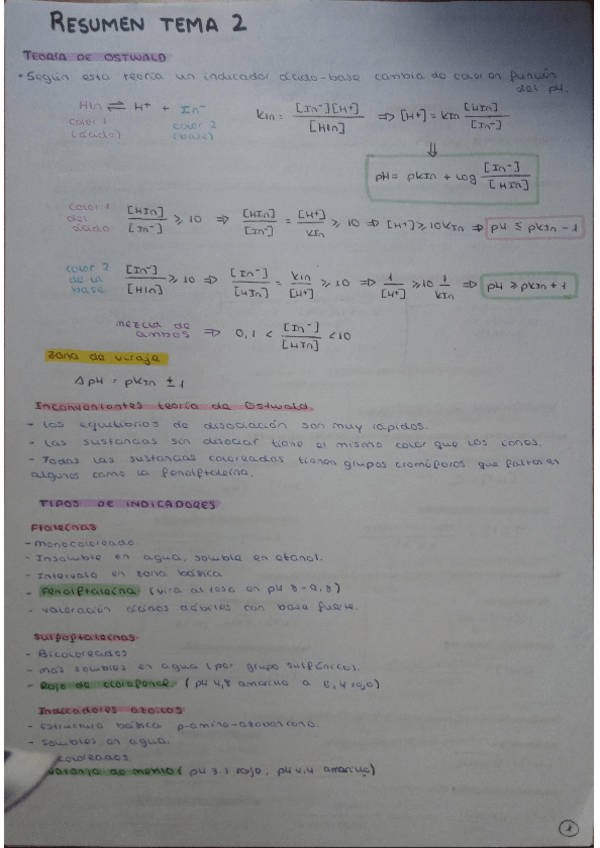 RESUMEN TEMA 2
TEORÍA DE OSTWALD
• Según esta teoría un indicador ácido-base cambia de color en función
del pH.
HIn ⇌ H⁺ + In⁻
color 1 (ácido)
color 2 (base)
KIn = [In⁻][H⁺] / [HIn] ⇒ [H⁺] = KIn [HIn] / [In⁻]
⇓
pH = pKIn + log [In⁻] / [HIn]
color 1 del ácido [HIn] / [In⁻] ≥ 10 ⇒ [HIn] / [In⁻] = [H⁺] / KIn ≥ 10 ⇒ [H⁺] ≥ 10 KIn ⇒ pH ≤ pKIn - 1
color 2 de la base [In⁻] / [HIn] ≥ 10 ⇒ [In⁻] / [HIn] = KIn / [H⁺] ≥ 10 ⇒ 1 / [H⁺] ≥ 10 1 / KIn ⇒ pH ≥ pKIn + 1
mezcla de ambos ⇒ 0,1 < [In⁻] / [HIn] < 10
Zona de viraje
Δ pH = pKIn ± 1
Inconvenientes teoría de Ostwald.
- Los equilibrios de disociación son muy rápidos.
- Las sustancias sin disociar tiene el mismo color que los iones.
- Todas las sustancias coloreadas tienen grupos cromóforos que faltan en
algunos como la fenolftaleína.
TIPOS DE INDICADORES
Ftaleínas
- Monocoloreado.
- Insoluble en agua, soluble en etanol.
- Intervalo en zona básica
- Fenolftaleína (vira al rosa en pH 8-9,8)
- valoración ácidos débiles con base fuerte.
Sulfoftaleínas
- Bicoloreados
- más solubles en agua (por grupo sulfónico).
- Rojo de clorofenol (pH 4,8 amarillo a 6,4 rojo)
Indicadores azoicos
- Estructura básica p-amino-azobenceno.
- Solubles en agua.
coloreados.
naranja de metilo (pH 3.1 rojo, pH 4,4 amarillo)
1